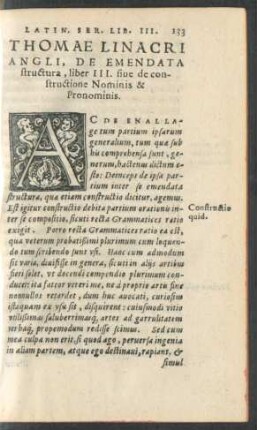 LATIN. SER. LIB. III. 133
THOMAE LINACRI
ANGLI, DE EMENDATA
structura, liber III. siue de con-
structione Nominis &
Pronominis.
AC DE ENALLA-
ge tum partium ipsarum
generalium, tum quæ sub
his comprehensa sunt, ge-
nerum, hactenus dictum e-
sto: Deinceps de ipsa par-
tium inter se emendata
structura, quæ etiam constructio dicitur, agemus.
Est igitur constructio debita partium orationis in-
ter se compositio, sicuti recta Grammatices ratio
exigit. Porro recta Grammatices ratio ea est,
qua veterum probatissimi plurimum cum loquen-
do tum scribendo sunt vsi. Hanc cum admodum
sit varia, diuisisse in genera, sicuti in alijs artibus
fieri solet, vt docendi compendio plurimum condu-
cit: ita fateor vereri me, ne à proprio artu sine
nonnullos reterdet, dum huc auocati, curiosius
istaquam ex vsu sit, disquirent: cuiusmodi vitio
vtilissimas saluberrimasq́; artes ad garrulitatem
propemodum redisse scimus. Sed cum
mea culpa non erit, si quod ago, peruersa ingenia
in aliam partem, atque ego destinaui, rapiant, &
simul
Constructio
quid.